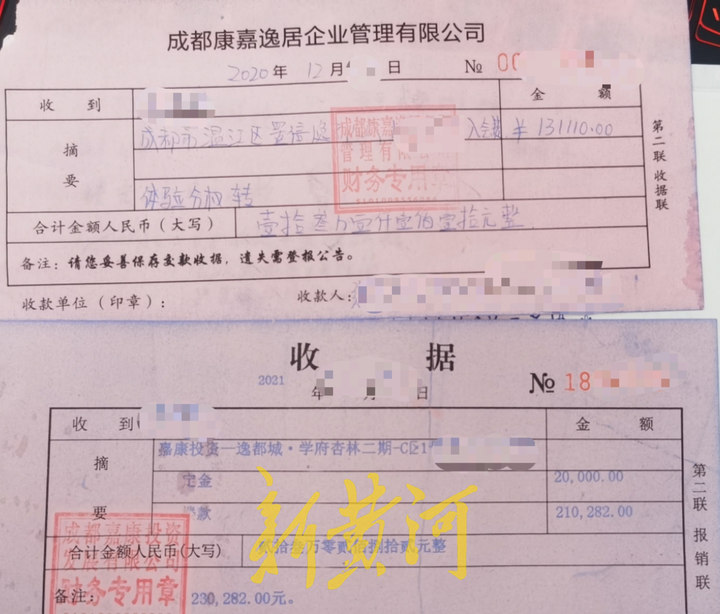 成都康嘉逸居企业管理有限公司
2020 年 12 月 日 № 00
收 到 金 额
成都市温江区 入会款 ¥ 131110.00
摘 要
体验分相转
成都康嘉逸
管理有限公
财务专用章
合计金额人民币（大写） 壹拾叁万壹仟壹佰壹拾元整
备注：请您妥善保存交款收据，遗失需登报公告。
收款单位（印章）： 收款人：
第二联 收据联
收 据
2021 年 月 日 № 18
收 到 金 额
嘉康投资—逸都城·学府杏林二期-C区1
摘 要
定金 20,000.00
款 210,282.00
合计金额人民币（大写） 贰拾叁万零贰佰捌拾贰元整
备注： 230,282.00元。
成都嘉康投资
发展有限公司
财务专用章
第二联 报销联
新黄河